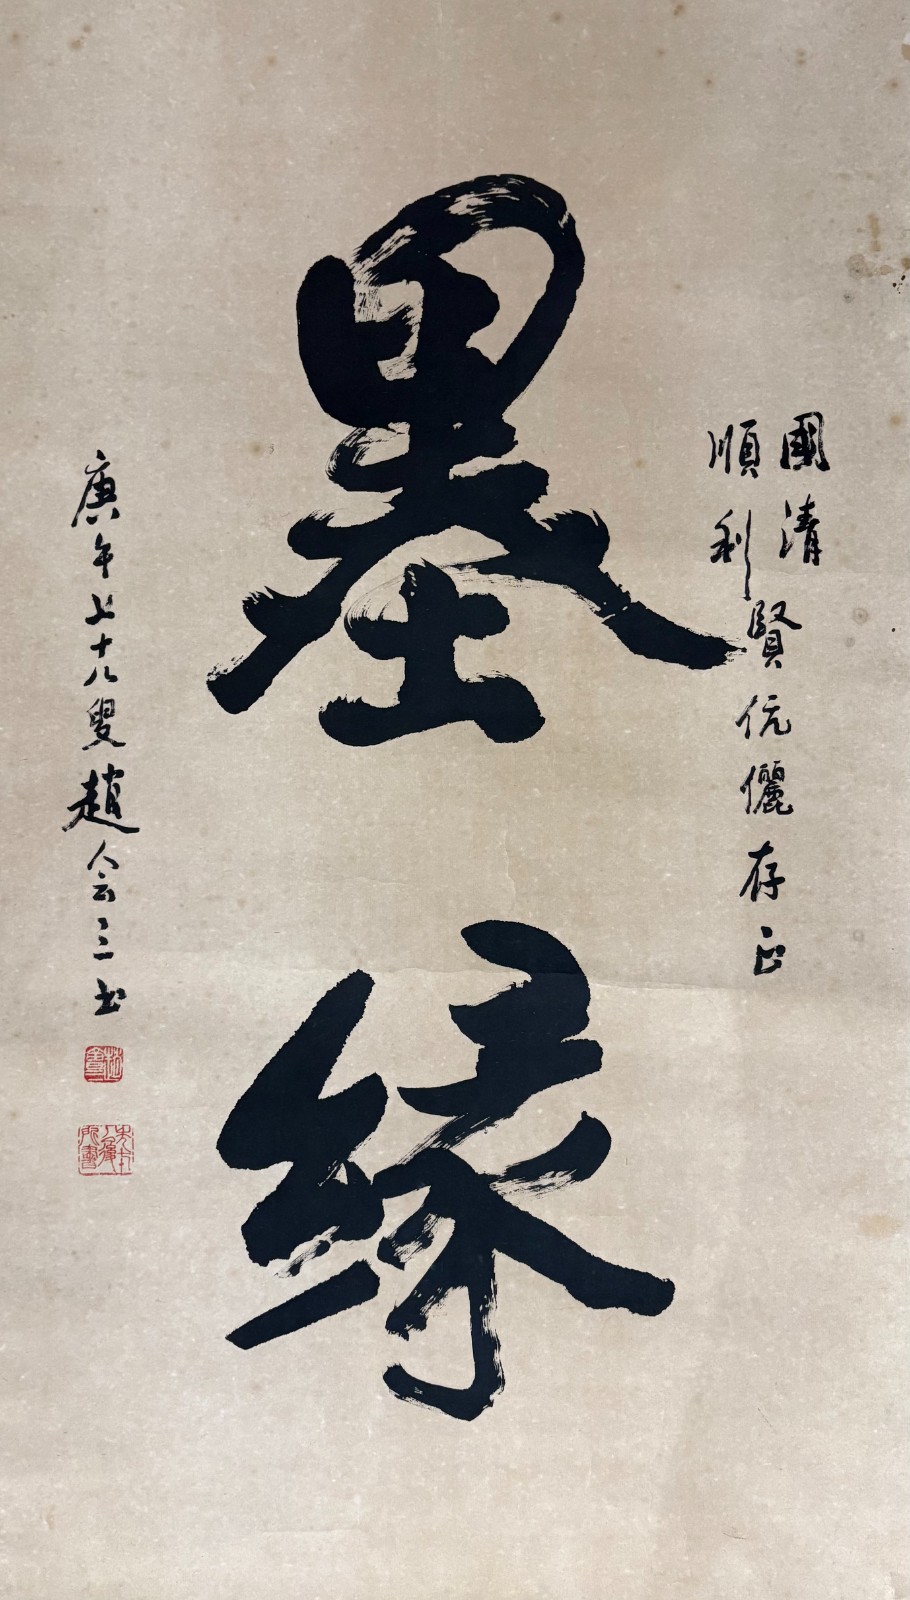 國清
順利
賢伉儷存正
墨緣
庚午七十八叟趙会三书